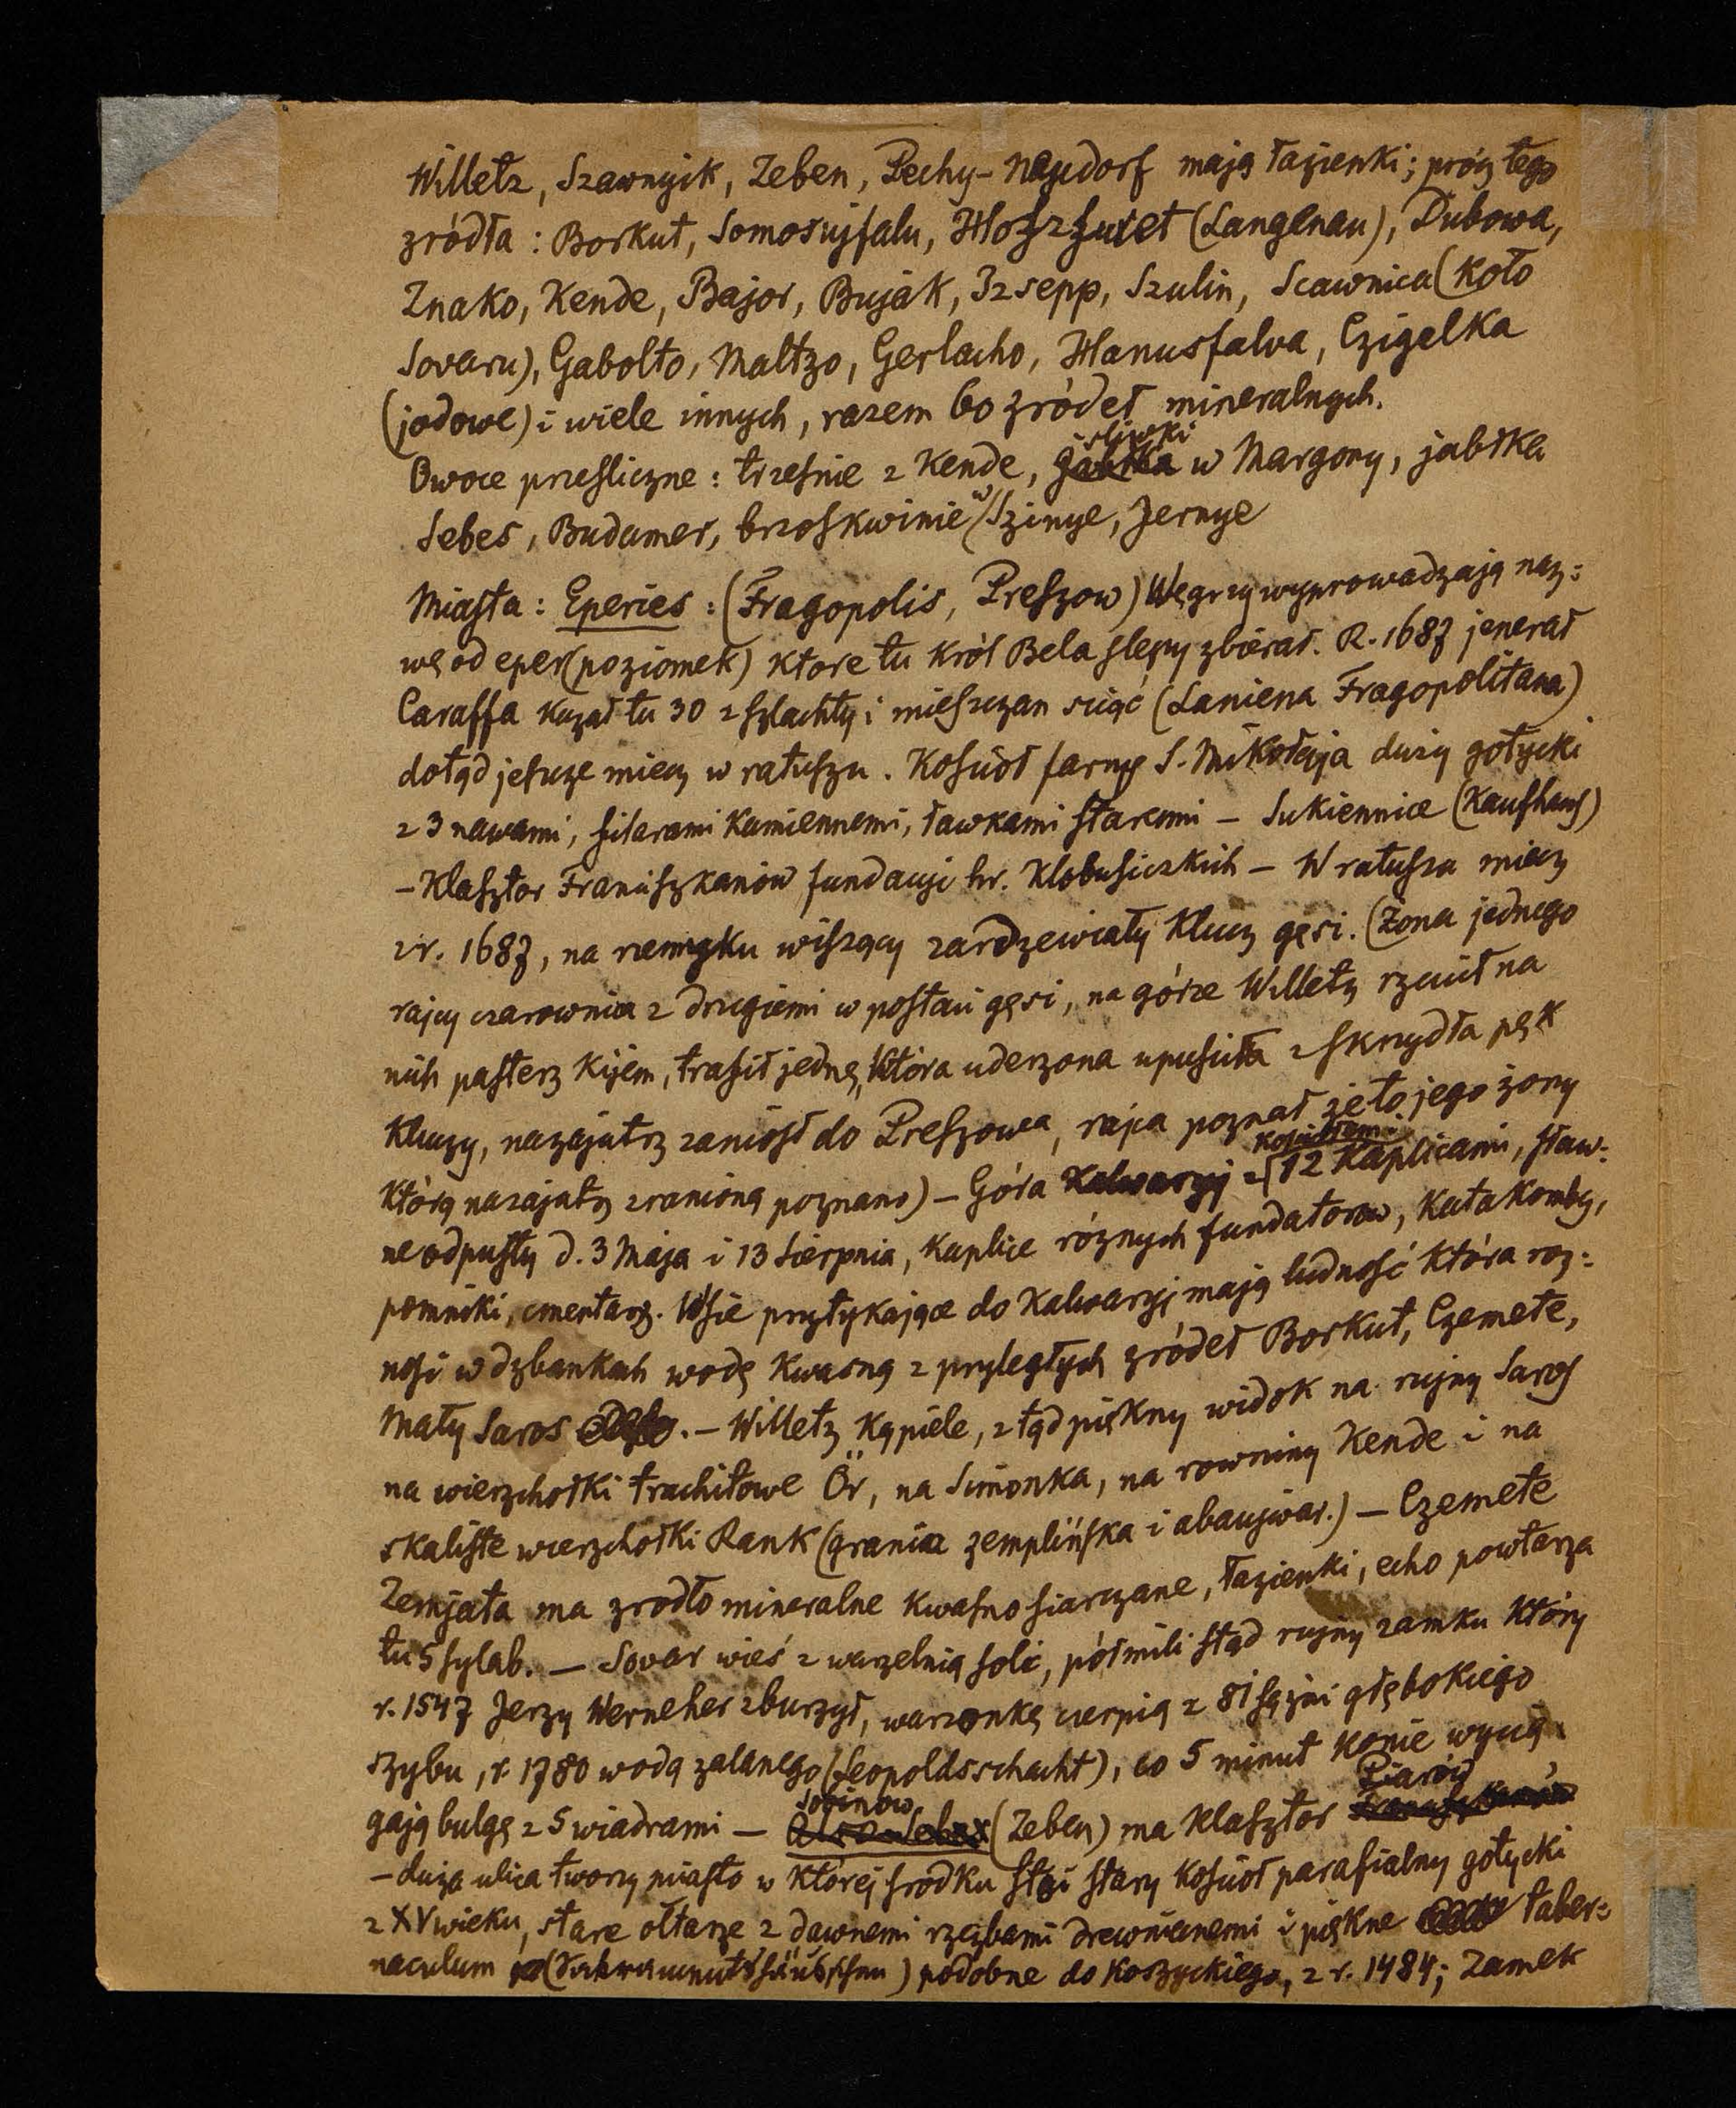 Willetz, Szawnyik, Zeben, Pechy-Neudorf mają łazienki; prócz tego
zródła: Borkut, Somosujfalu, Hoszszuret (Langenau), Dubowa,
Znako, Kende, Bajor, Bujak, Izsepp, Szulin, Scawnica (koło
Sovaru), Gabolto, Maltzo, Gerlacho, Hanusfalva, Czigelka
(jodowe) i wiele innych, razem 60 zródeł mineralnych.
Owoce przesliczne: trzesnie z Kende, śliwki w Margony, jabłka
Sebes, Budamer, brzoskwinie w Szinye, Jernye
Miasta: Eperies: (Fragopolis, Preszow) Węgrzy wyprowadzają naz=
wę od eper (poziomek) ktore tu król Bela slepy zbierał. R. 1687 jenerał
Caraffa kazał tu 30 z szlachty i mieszczan sciąć (Laniena Fragopolitana)
dotąd jeszcze miecz w ratuszu. Kosciół farny S. Mikołaja duży gotycki
z 3 nawami, filarami kamiennemi, ławkami staremi – Sukiennice (Kaufhaus)
– Klasztor Franciszkanów fundacyi hr. Klobusiczkich – W ratuszu miecz
z r. 1687, na rzemyku wiszący zardzewiały klucz gęsi. (Żona jednego
rajcy czarownica z drugiemi w postaci gęsi, na górze Willetz rzucił na
nich pasterz kijem, trafił jednę, która uderzona upusciła z skrzydła pęk
kluczy, nazajutrz zaniósł do Preszowa, rajca poznał że to jego żony
którą nazajutrz zranioną poznano) – Góra Kalwaryj z kosciołem i 12 kaplicami, sław=
ne odpusty d. 3 Maja i 13 Sierpnia, kaplice róznych fundatorow, katakomby,
pomniki, cmentarz. Wsie przytykające do Kalwaryj mają ludność która roz=
nosi w dzbankach wodę kwasną z przyległych zródeł Borkut, Czemete,
Mały Saros. – Willetz kąpiele, z tąd piękny widok na ruiny Saros
na wierzchołki trachitowe Ör, na Simonka, na rowniny Kende i na
skaliste wierzchołki Rank (granica zemplińska i abaujwar.) – Czemete
Zemjata ma zrodło mineralne kwasno siarczane, łazienki, echo powtarza
tu 5 sylab. – Sovar wieś z warzelnią soli, pół mili stąd ruiny zamku który
r. 1547 Jerzy Werneher zburzył, warzonkę czerpią z 81 sążni głębokiego
szybu, r. 1780 wodą zalanego (Leopoldsschacht), co 5 minut konie wycią
gają bulgę z 5 wiadrami – Sobinow (Zeben) ma klasztor Piarów
– duża ulica tworzy miasto w której srodku stoi stary kosciół parafialny gotycki
z XV wieku, stare ołtarze z dawnemi rzezbami drewnianemi i piękne taber=
naculum (Sakramentshäuschen) podobne do koszyckiego, z r. 1484; Zamek